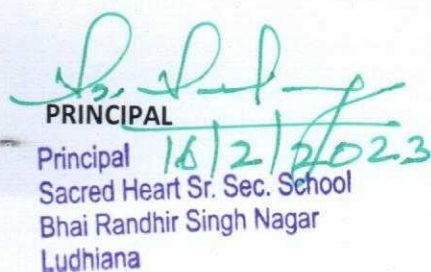 PRINCIPAL
Principal 16/2/2023
Sacred Heart Sr. Sec. School
Bhai Randhir Singh Nagar
Ludhiana